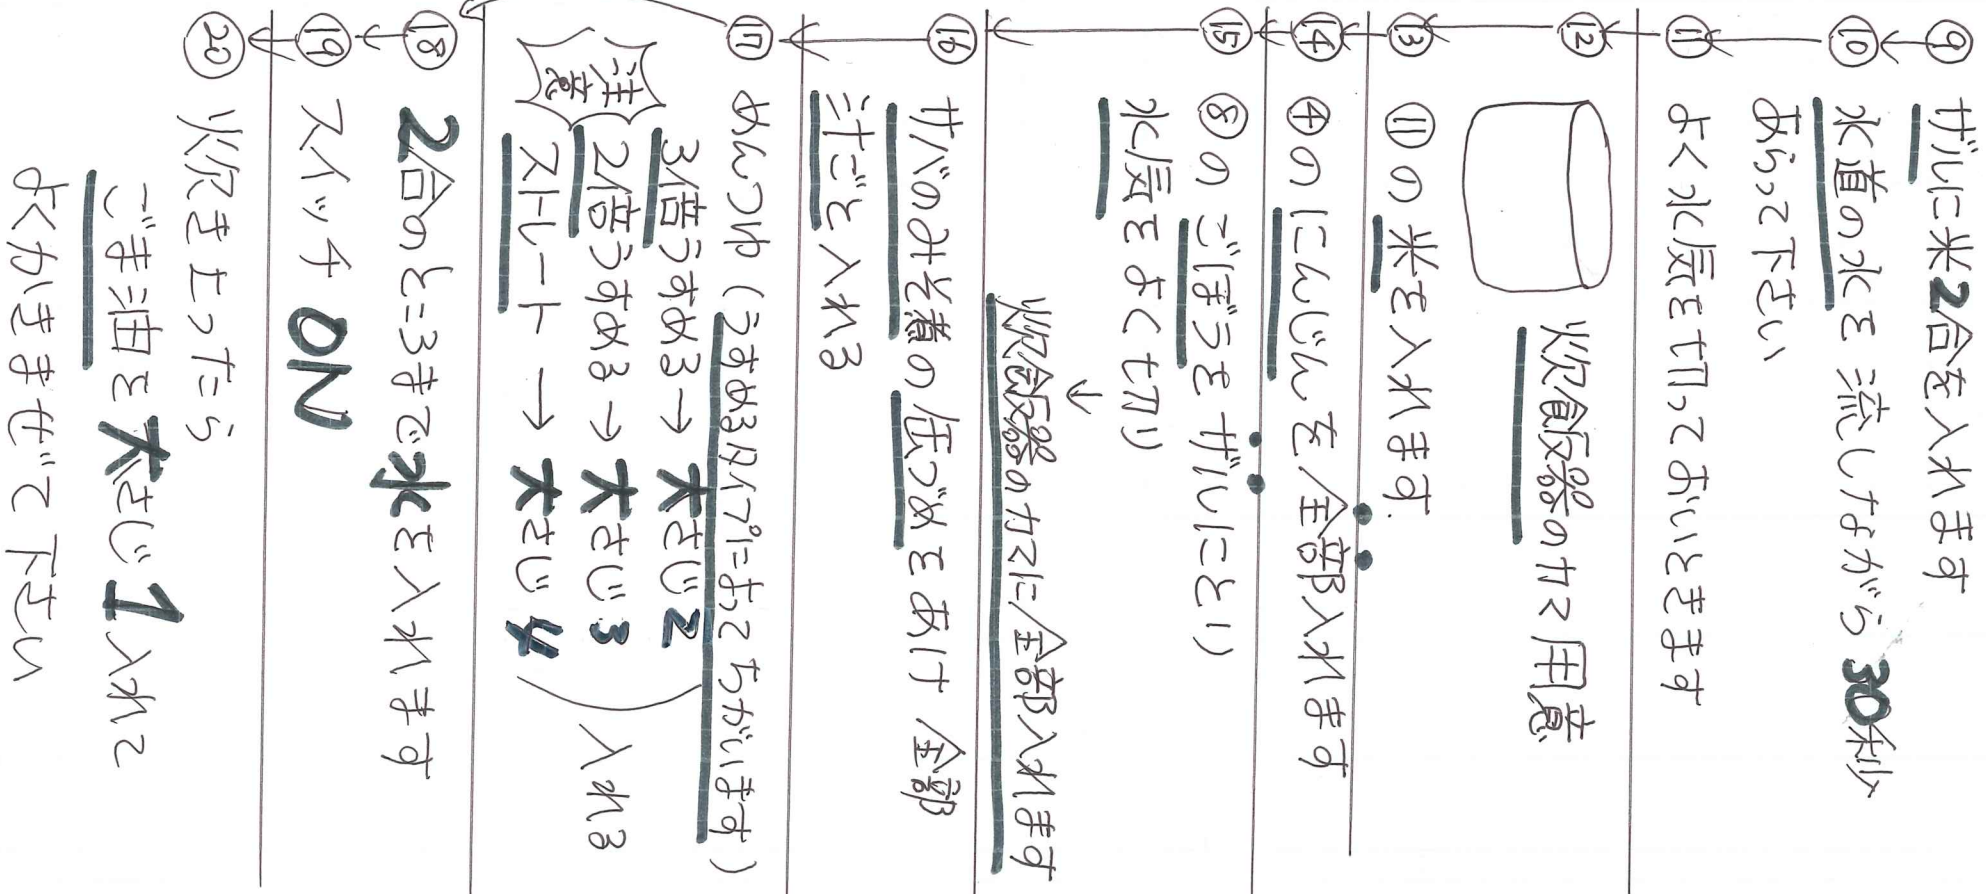 ⑨ ザルに米2合を入れます
⑩ 水道の水を流しながら30秒
あらって下さい
⑪ よく水気を切っておいときます
⑫ 炊飯器のカマ用意
⑬ ⑪の米を入れます。
⑭ ④のにんじんを全部入れます
⑮ ⑧のごぼうをザルにとり
水気をよく切り
↓
炊飯器のカマに全部入れます
⑯ サバのみそ煮の缶づめをあけ全部
汁ごと入れる
⑰ めんつゆ(うすめるタイプによってちがいます)
注意
3倍うすめる→大さじ2
2倍うすめる→大さじ3
ストレート→大さじ4
入れる
⑱ 2合のところまで水を入れます
⑲ スイッチON
⑳ 炊き上ったら
ごま油を大さじ1入れて
よくかきまぜて下さい